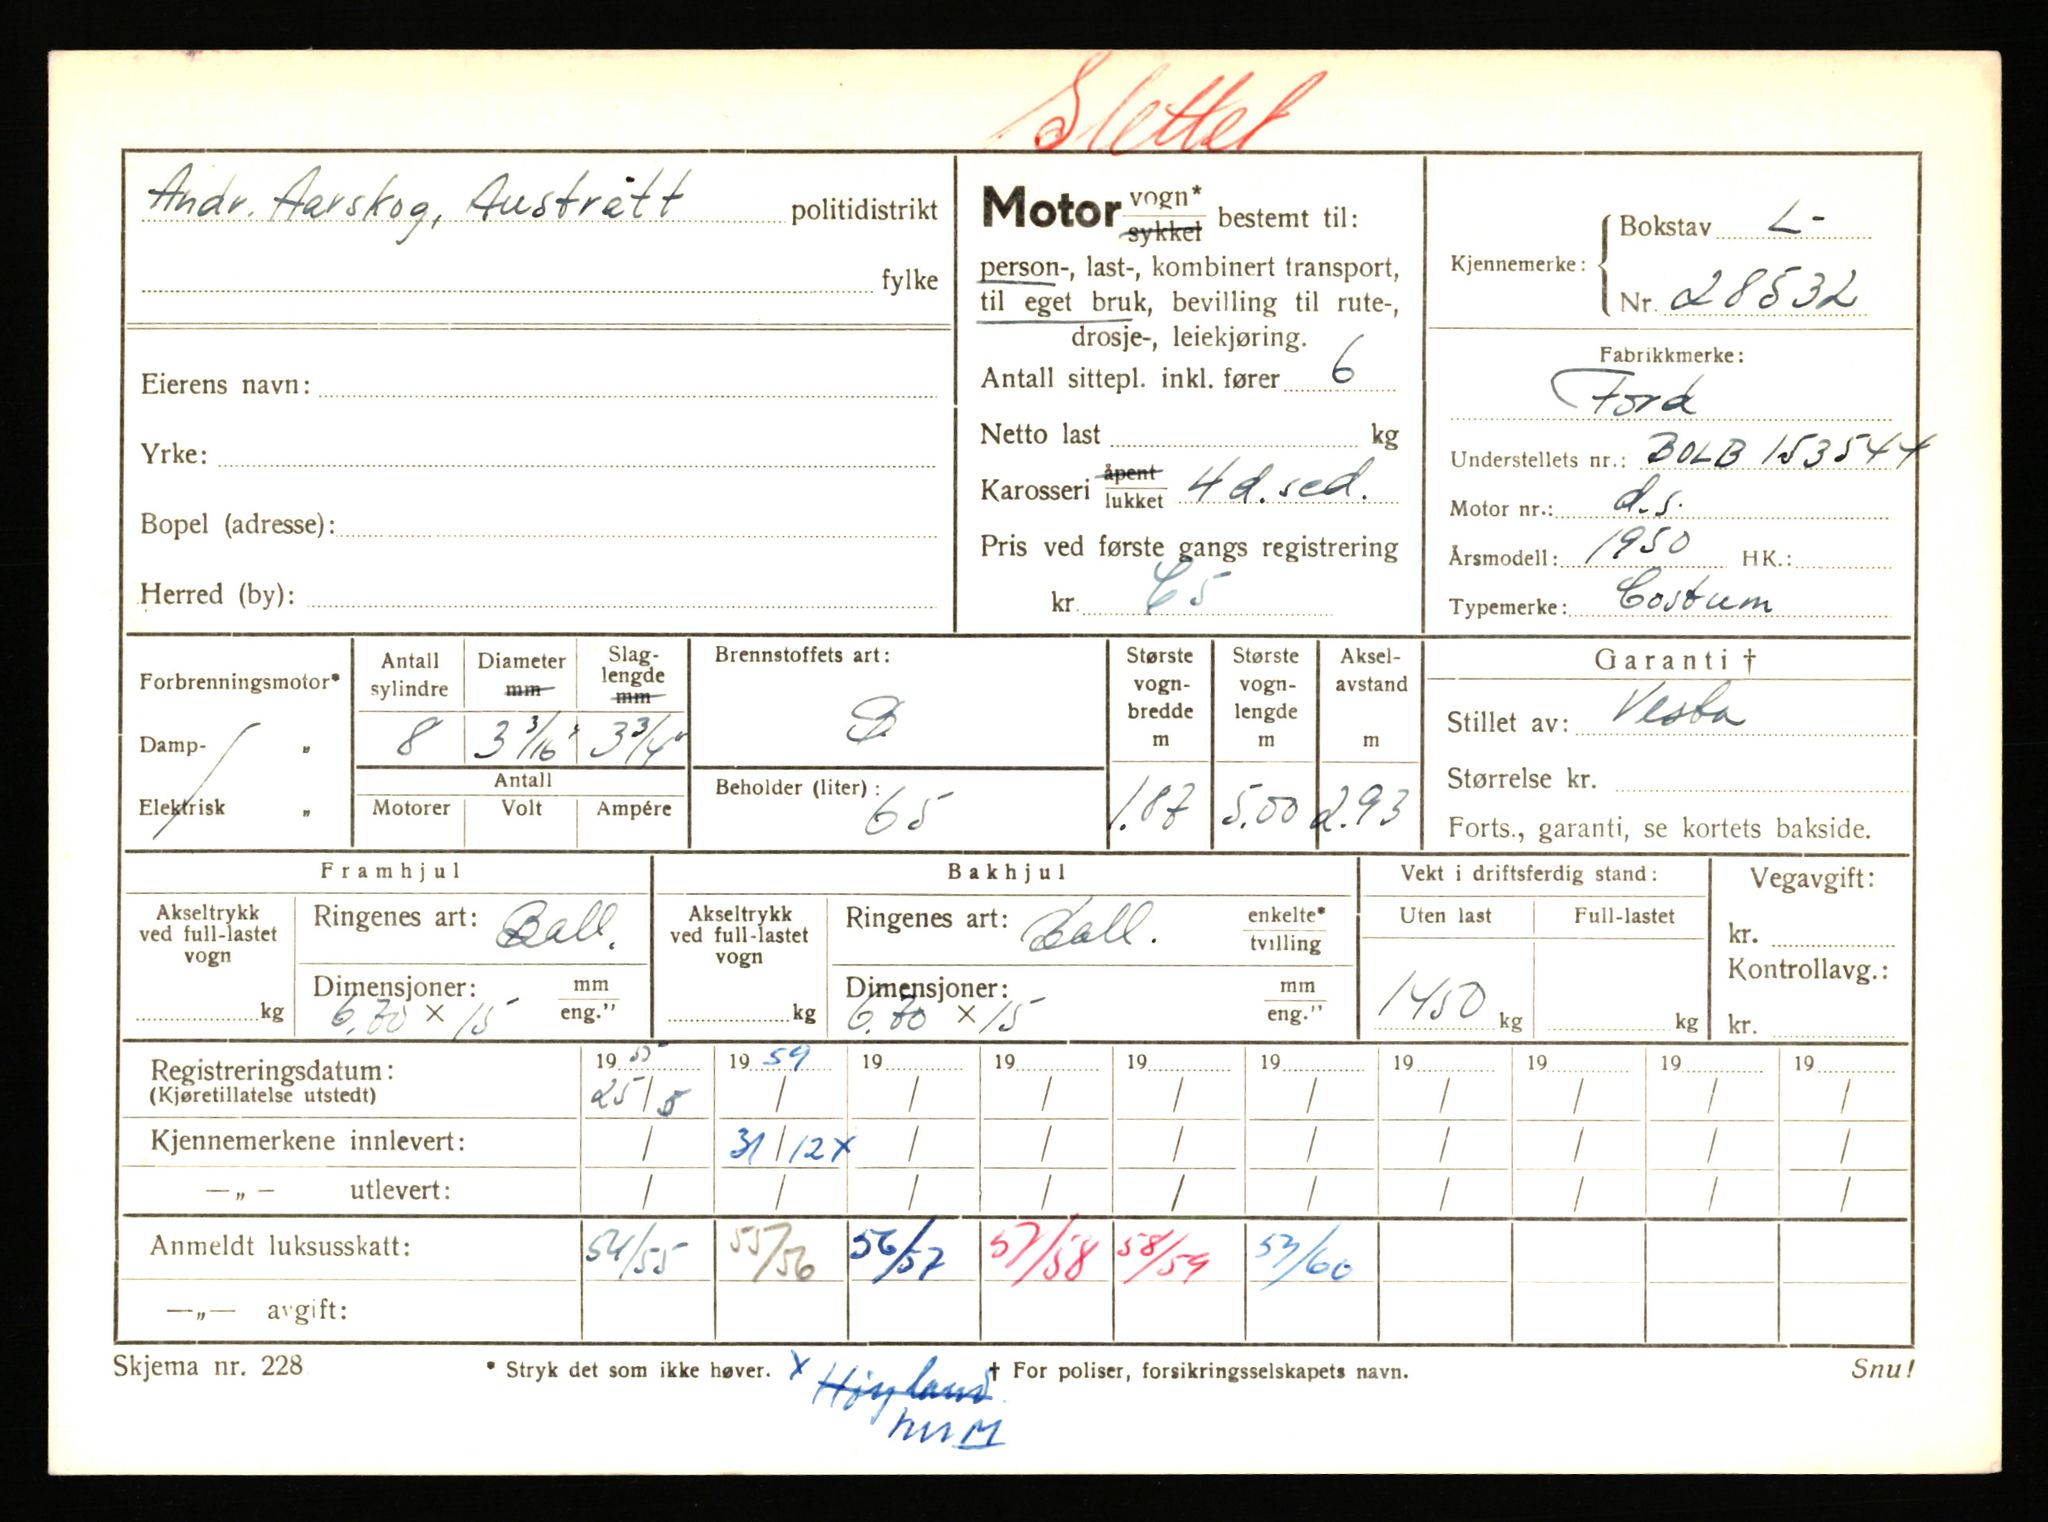 Slettet
Andr. Aarskog, Austrått politidistrikt
fylke
Eierens navn:
Yrke:
Bopel (adresse):
Herred (by):
Motor vogn* sykkel bestemt til:
person-, last-, kombinert transport,
til eget bruk, bevilling til rute-,
drosje-, leiekjøring.
Antall sittepl. inkl. fører 6
Netto last kg
Karosseri åpent lukket 4 d. sed.
Pris ved første gangs registrering
kr.
Kjennemerke: Bokstav L-
Nr. 28532
Fabrikkmerke:
Ford
Understellets nr.: BOLB 153544
Motor nr.: d.s.
Årsmodell: 1950 HK.:
Typemerke: Costum
Forbrenningsmotor*
Damp- „
Elektrisk „
Antall sylindre 8
Diameter mm 3 3/16"
Slaglengde mm 3 3/4"
Antall
Motorer Volt Ampére
Brennstoffets art:
B
Beholder (liter):
65
Største vognbredde m 1.87
Største vognlengde m 5.00
Akselavstand m 2.93
Garanti †
Stillet av: Vesta
Størrelse kr.
Forts., garanti, se kortets bakside.
Framhjul
Akseltrykk ved full-lastet vogn kg
Ringenes art: Ball.
Dimensjoner: mm eng."
6.70 × 15
Bakhjul
Akseltrykk ved full-lastet vogn kg
Ringenes art: Ball. enkelte* tvilling
Dimensjoner: mm eng."
6.70 × 15
Vekt i driftsferdig stand:
Uten last Full-lastet
1450 kg kg
Vegavgift:
kr.
Kontrollavg.:
kr.
Registreringsdatum: 19 55 19 59 19 19 19 19 19 19 19 19
(Kjøretillatelse utstedt) 25/5 / / / / / / / / /
Kjennemerkene innlevert: / 31/12 x / / / / / / / /
—„— utlevert: / / / / / / / / / /
Anmeldt luksusskatt: 54/55 55/56 56/57 57/58 58/59 59/60
—„— avgift:
Skjema nr. 228 * Stryk det som ikke høver. † For poliser, forsikringsselskapets navn. Snu!
x Høyland